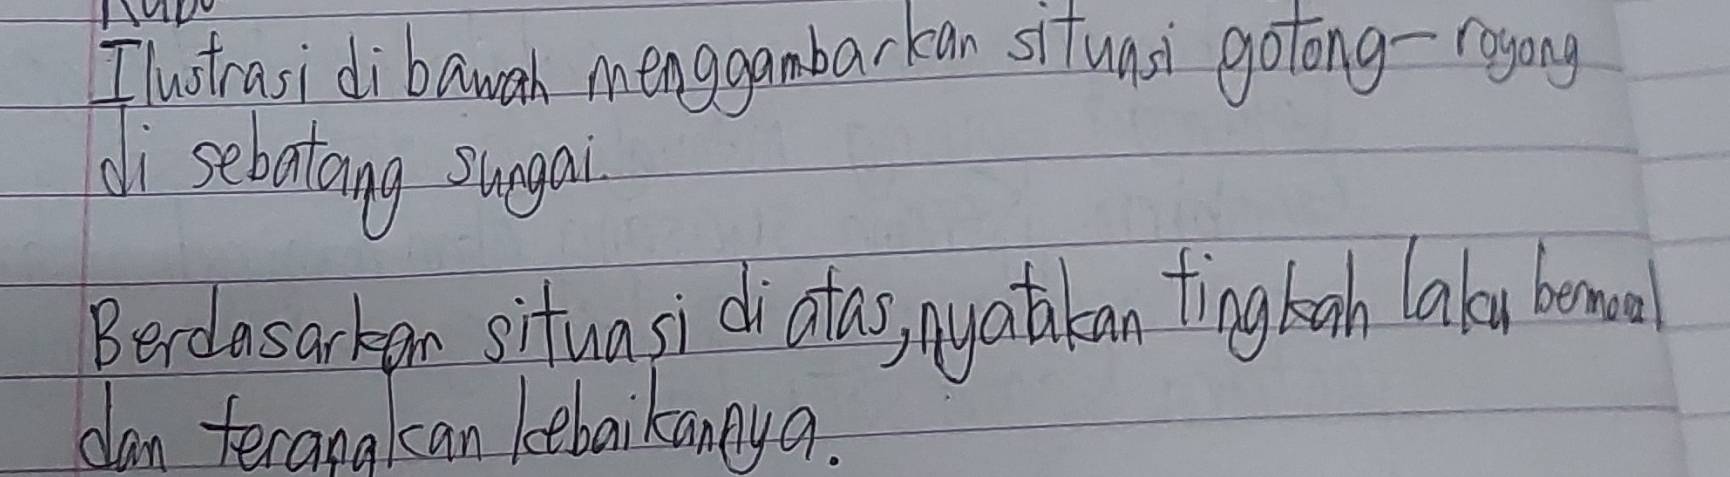 Ilustrasi di bawah menggambarkan situasi gotong-royong
di sebatang sungai.
Berdasarkan situasi di atas, nyatakan tingkah laku bermoral
dan terangkan kebaikannya.